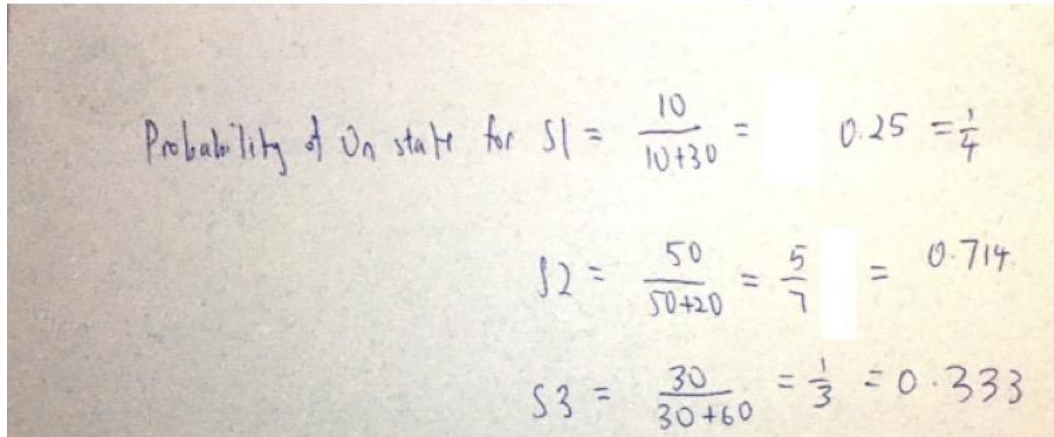 Probability of On state for S1 = 10/10+30 = 0.25 = 1/4
S2 = 50/50+20 = 5/7 = 0.714
S3 = 30/30+60 = 1/3 = 0.333